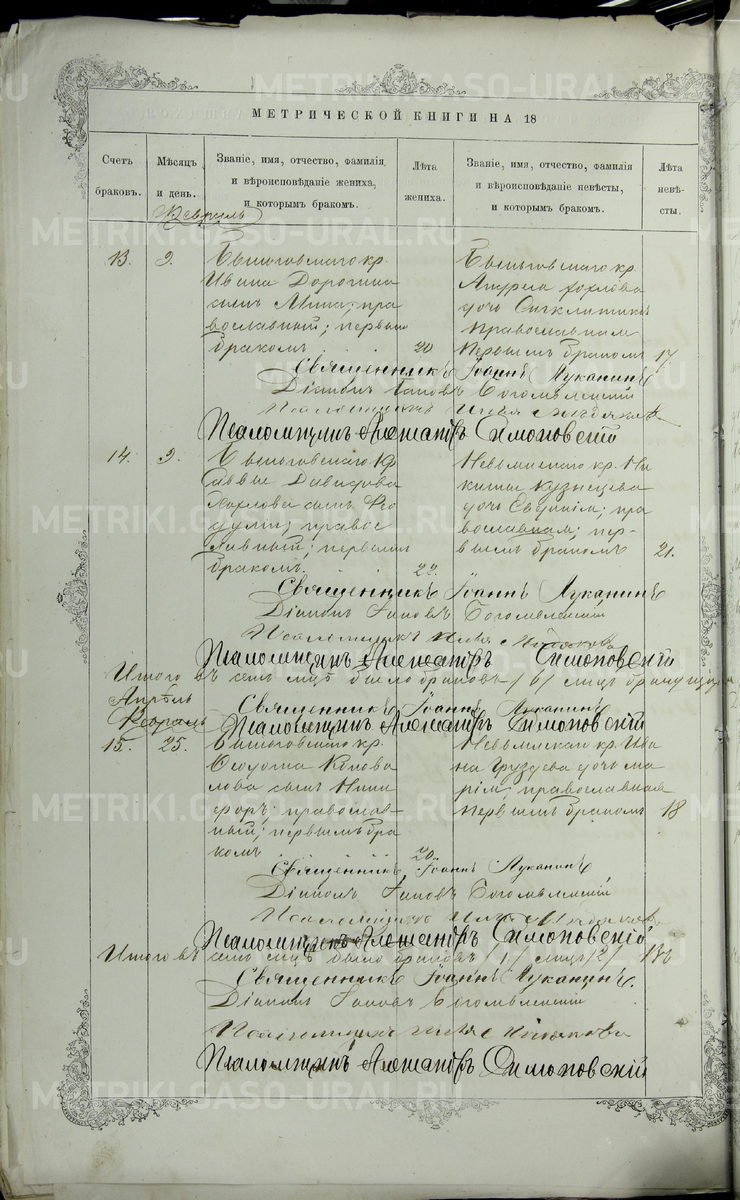 МЕТРИЧЕСКОЙ КНИГИ НА 18
Счетъ браковъ.
Мѣсяцъ и день.
Званіе, имя, отчество, фамилія и вѣроисповѣданіе жениха, и которымъ бракомъ.
Лѣта жениха.
Званіе, имя, отчество, фамилія и вѣроисповѣданіе невѣсты, и которымъ бракомъ.
Лѣта невѣсты.
Февраль
13. 9.
Быньговскаго кр.
Ивана Дорогина
сынъ Мина; пра
вославный; первымъ
бракомъ 20
Быньговскаго кр.
Хохлова
дочь Синклитикія
православная
первымъ бракомъ 17
Священникъ Іоаннъ Луканинъ
Діаконъ Іаковъ Богоявленскій
Псаломщикъ Илья
Псаломщикъ Александръ Симоновскій
14. 9.
Быньговскаго кр.
Саввы Давидова
Хохлова сынъ Ѳео
дулъ; правос
лавный; первымъ
бракомъ. 22.
Невьянскаго кр. Ни
киты Кузнецова
дочь Евдокія; пра
вославная; пер-
вымъ бракомъ 21.
Священникъ Іоаннъ Луканинъ
Діаконъ Іаковъ Богоявленскій
Псаломщикъ Илья
Псаломщикъ Александръ Симоновскій
Итого въ семъ мцѣ было браковъ /6/ лицъ
Священникъ Іоаннъ Луканинъ
Псаломщикъ Александръ Симоновскій
Апрѣль
Февраль
15. 25.
Быньговскаго кр.
Ѳедота Конова
лова сынъ Ники
форъ; православ-
ный; первымъ бра
комъ 20.
Невьянскаго кр. Ива
на Груздева дочь Ма
рія; православная
первымъ бракомъ 18
Священникъ Іоаннъ Луканинъ
Діаконъ Іаковъ Богоявленскій
Псаломщикъ Илья
Псаломщикъ Александръ Симоновскій
Итого въ семъ мцѣ было браковъ /1/ лицъ /2/
Священникъ Іоаннъ Луканинъ.
Діаконъ Іаковъ Богоявленскій
Псаломщикъ Илья
Псаломщикъ Александръ Симоновскій
METRIKI.GASO-URAL.RU
METRIKI.GASO-URAL.RU
METRIKI.GASO-URAL.RU
METRIKI.GASO-URAL.RU
METRIKI.GASO-URAL.RU
METRIKI.GASO-URAL.RU
METRIKI.GASO-URAL.RU
METRIKI.GASO-URAL.RU